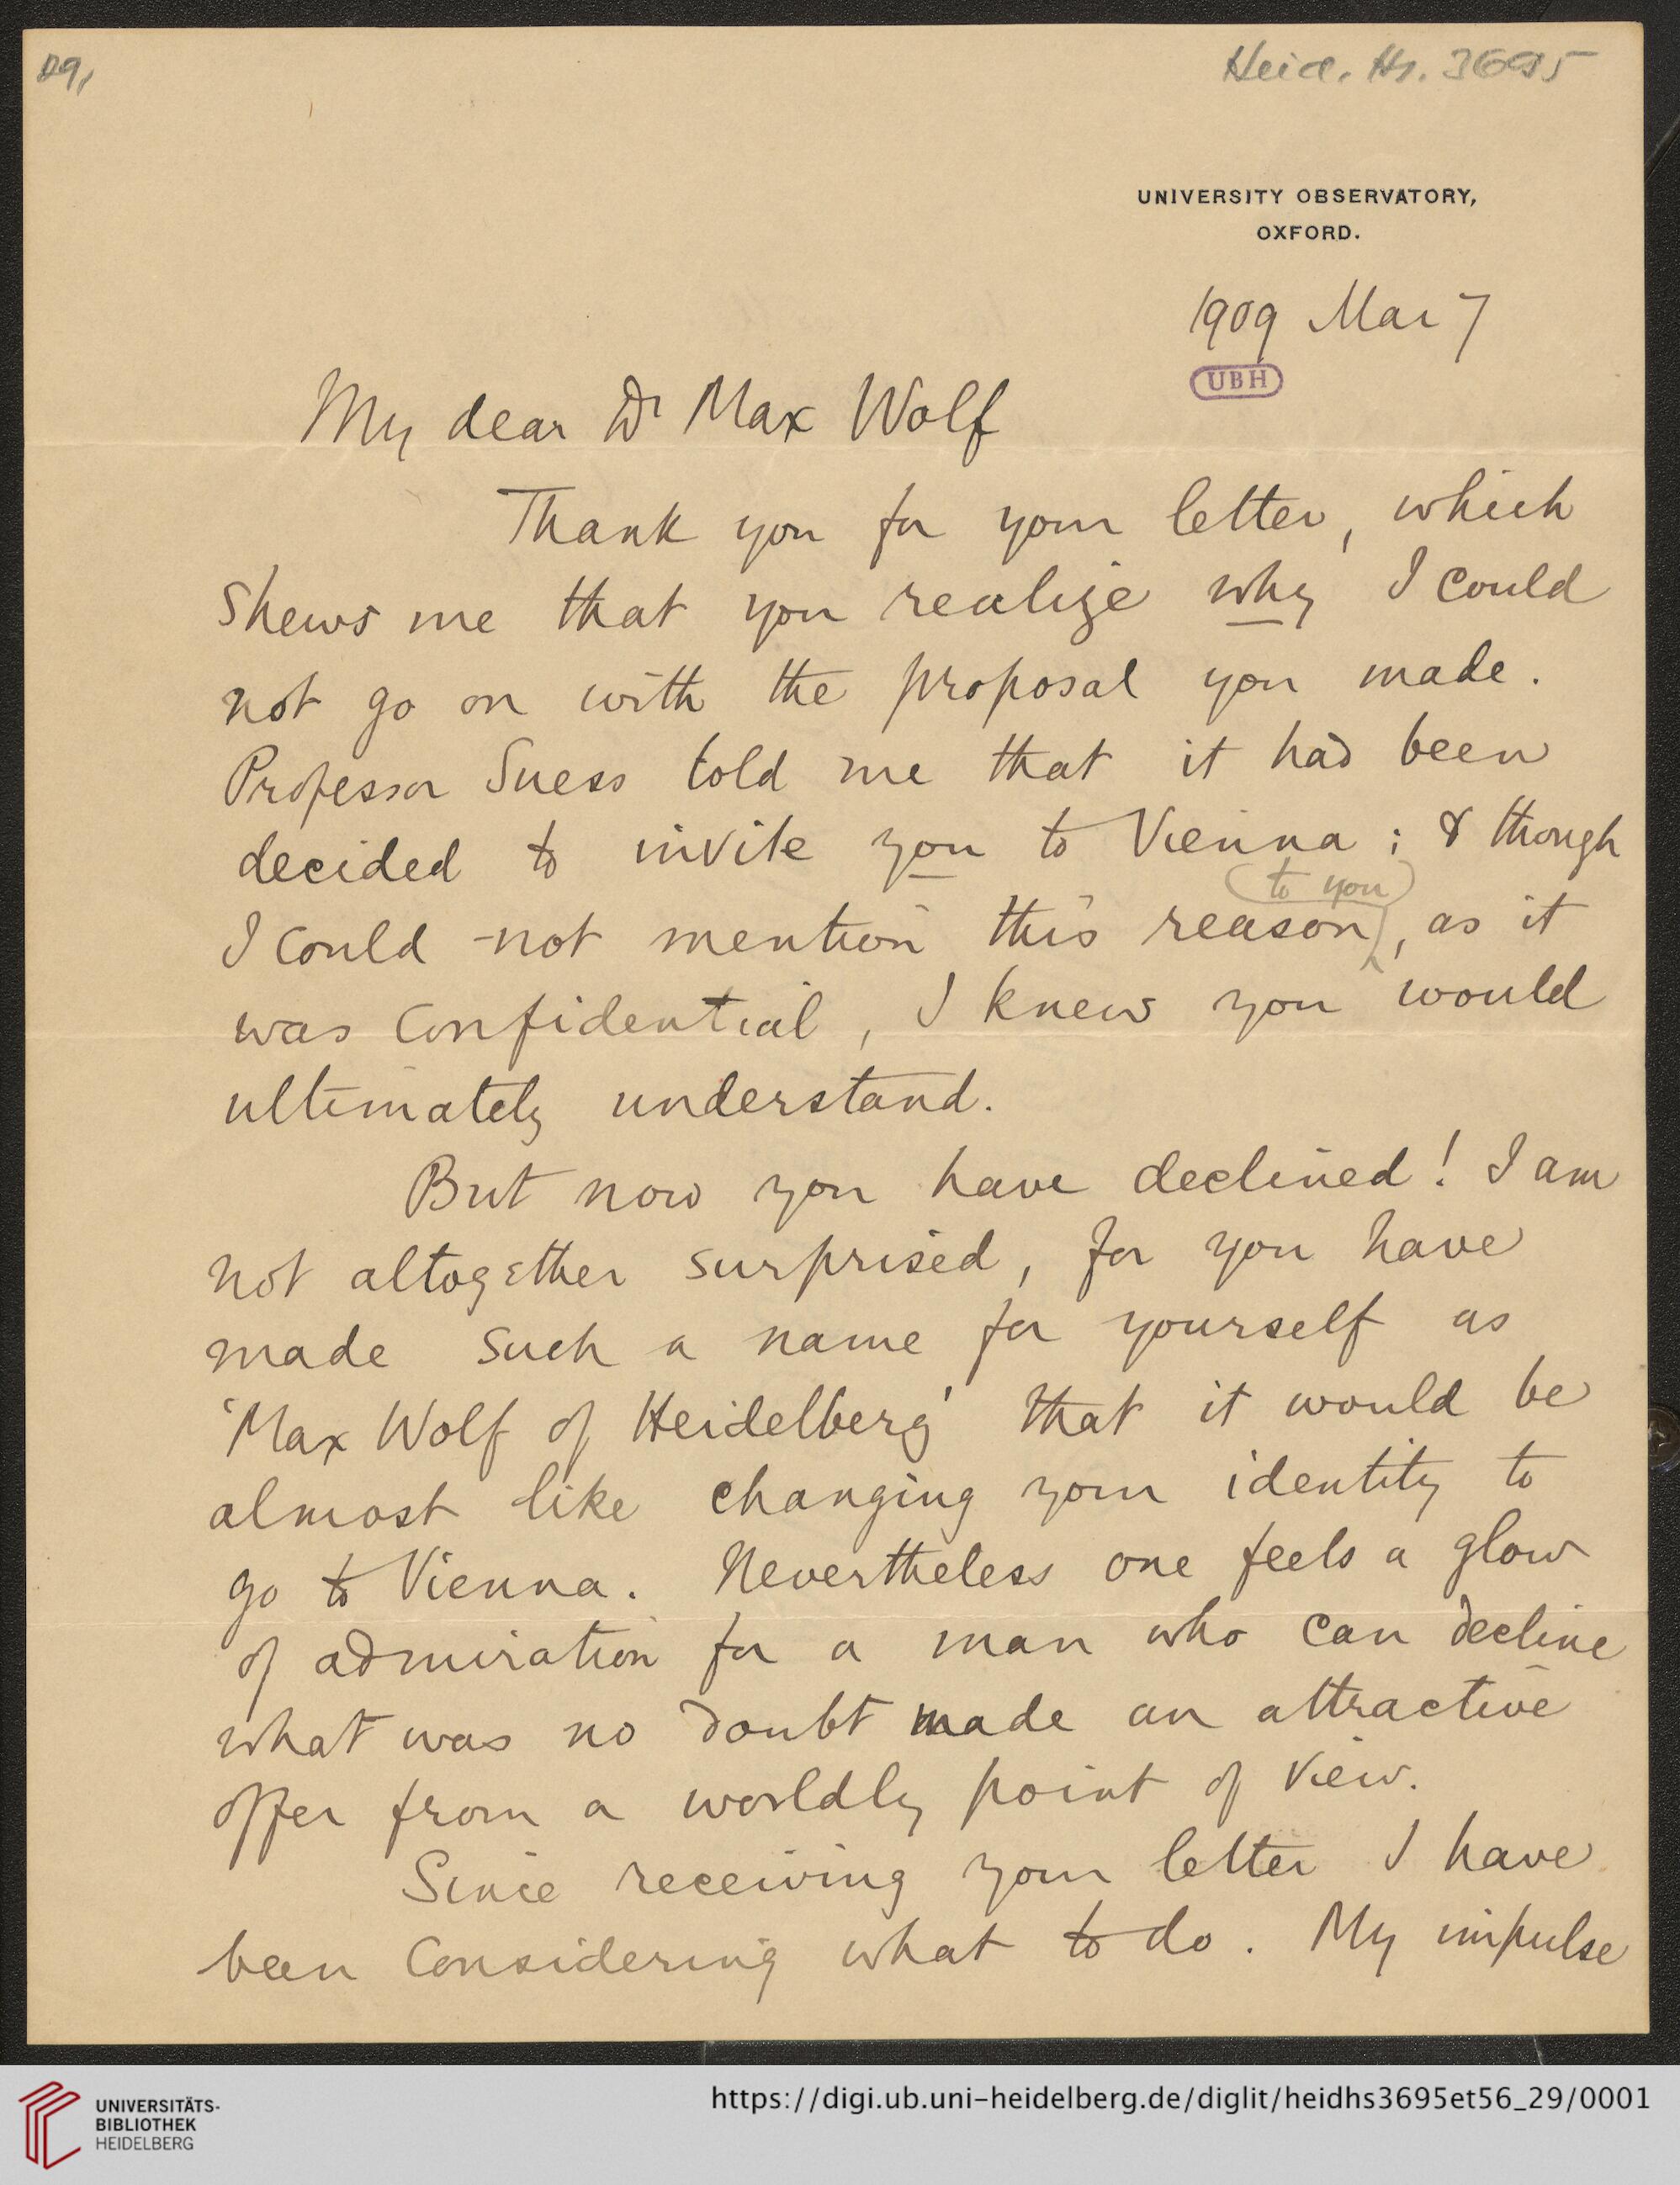 29,
Heid. Hs. 3695
UNIVERSITY OBSERVATORY,
OXFORD.
1909 Mar 7
UBH
My dear Dr Max Wolf
Thank you for your letter, which
shews me that you realize why I could
not go on with the proposal you made.
Professor Suess told me that it had been
decided to invite you to Vienna; & though
(to you)
I could not mention this reason, as it
was confidential, I knew you would
ultimately understand.
But now you have declined! I am
not altogether surprised, for you have
made such a name for yourself as
'Max Wolf of Heidelberg' that it would be
almost like changing your identity to
go to Vienna. Nevertheless one feels a glow
of admiration for a man who can decline
what was no doubt made an attractive
offer from a worldly point of view.
Since receiving your letter I have
been considering what to do. My impulse
UNIVERSITÄTS-
BIBLIOTHEK
HEIDELBERG
https://digi.ub.uni-heidelberg.de/diglit/heidhs3695et56_29/0001